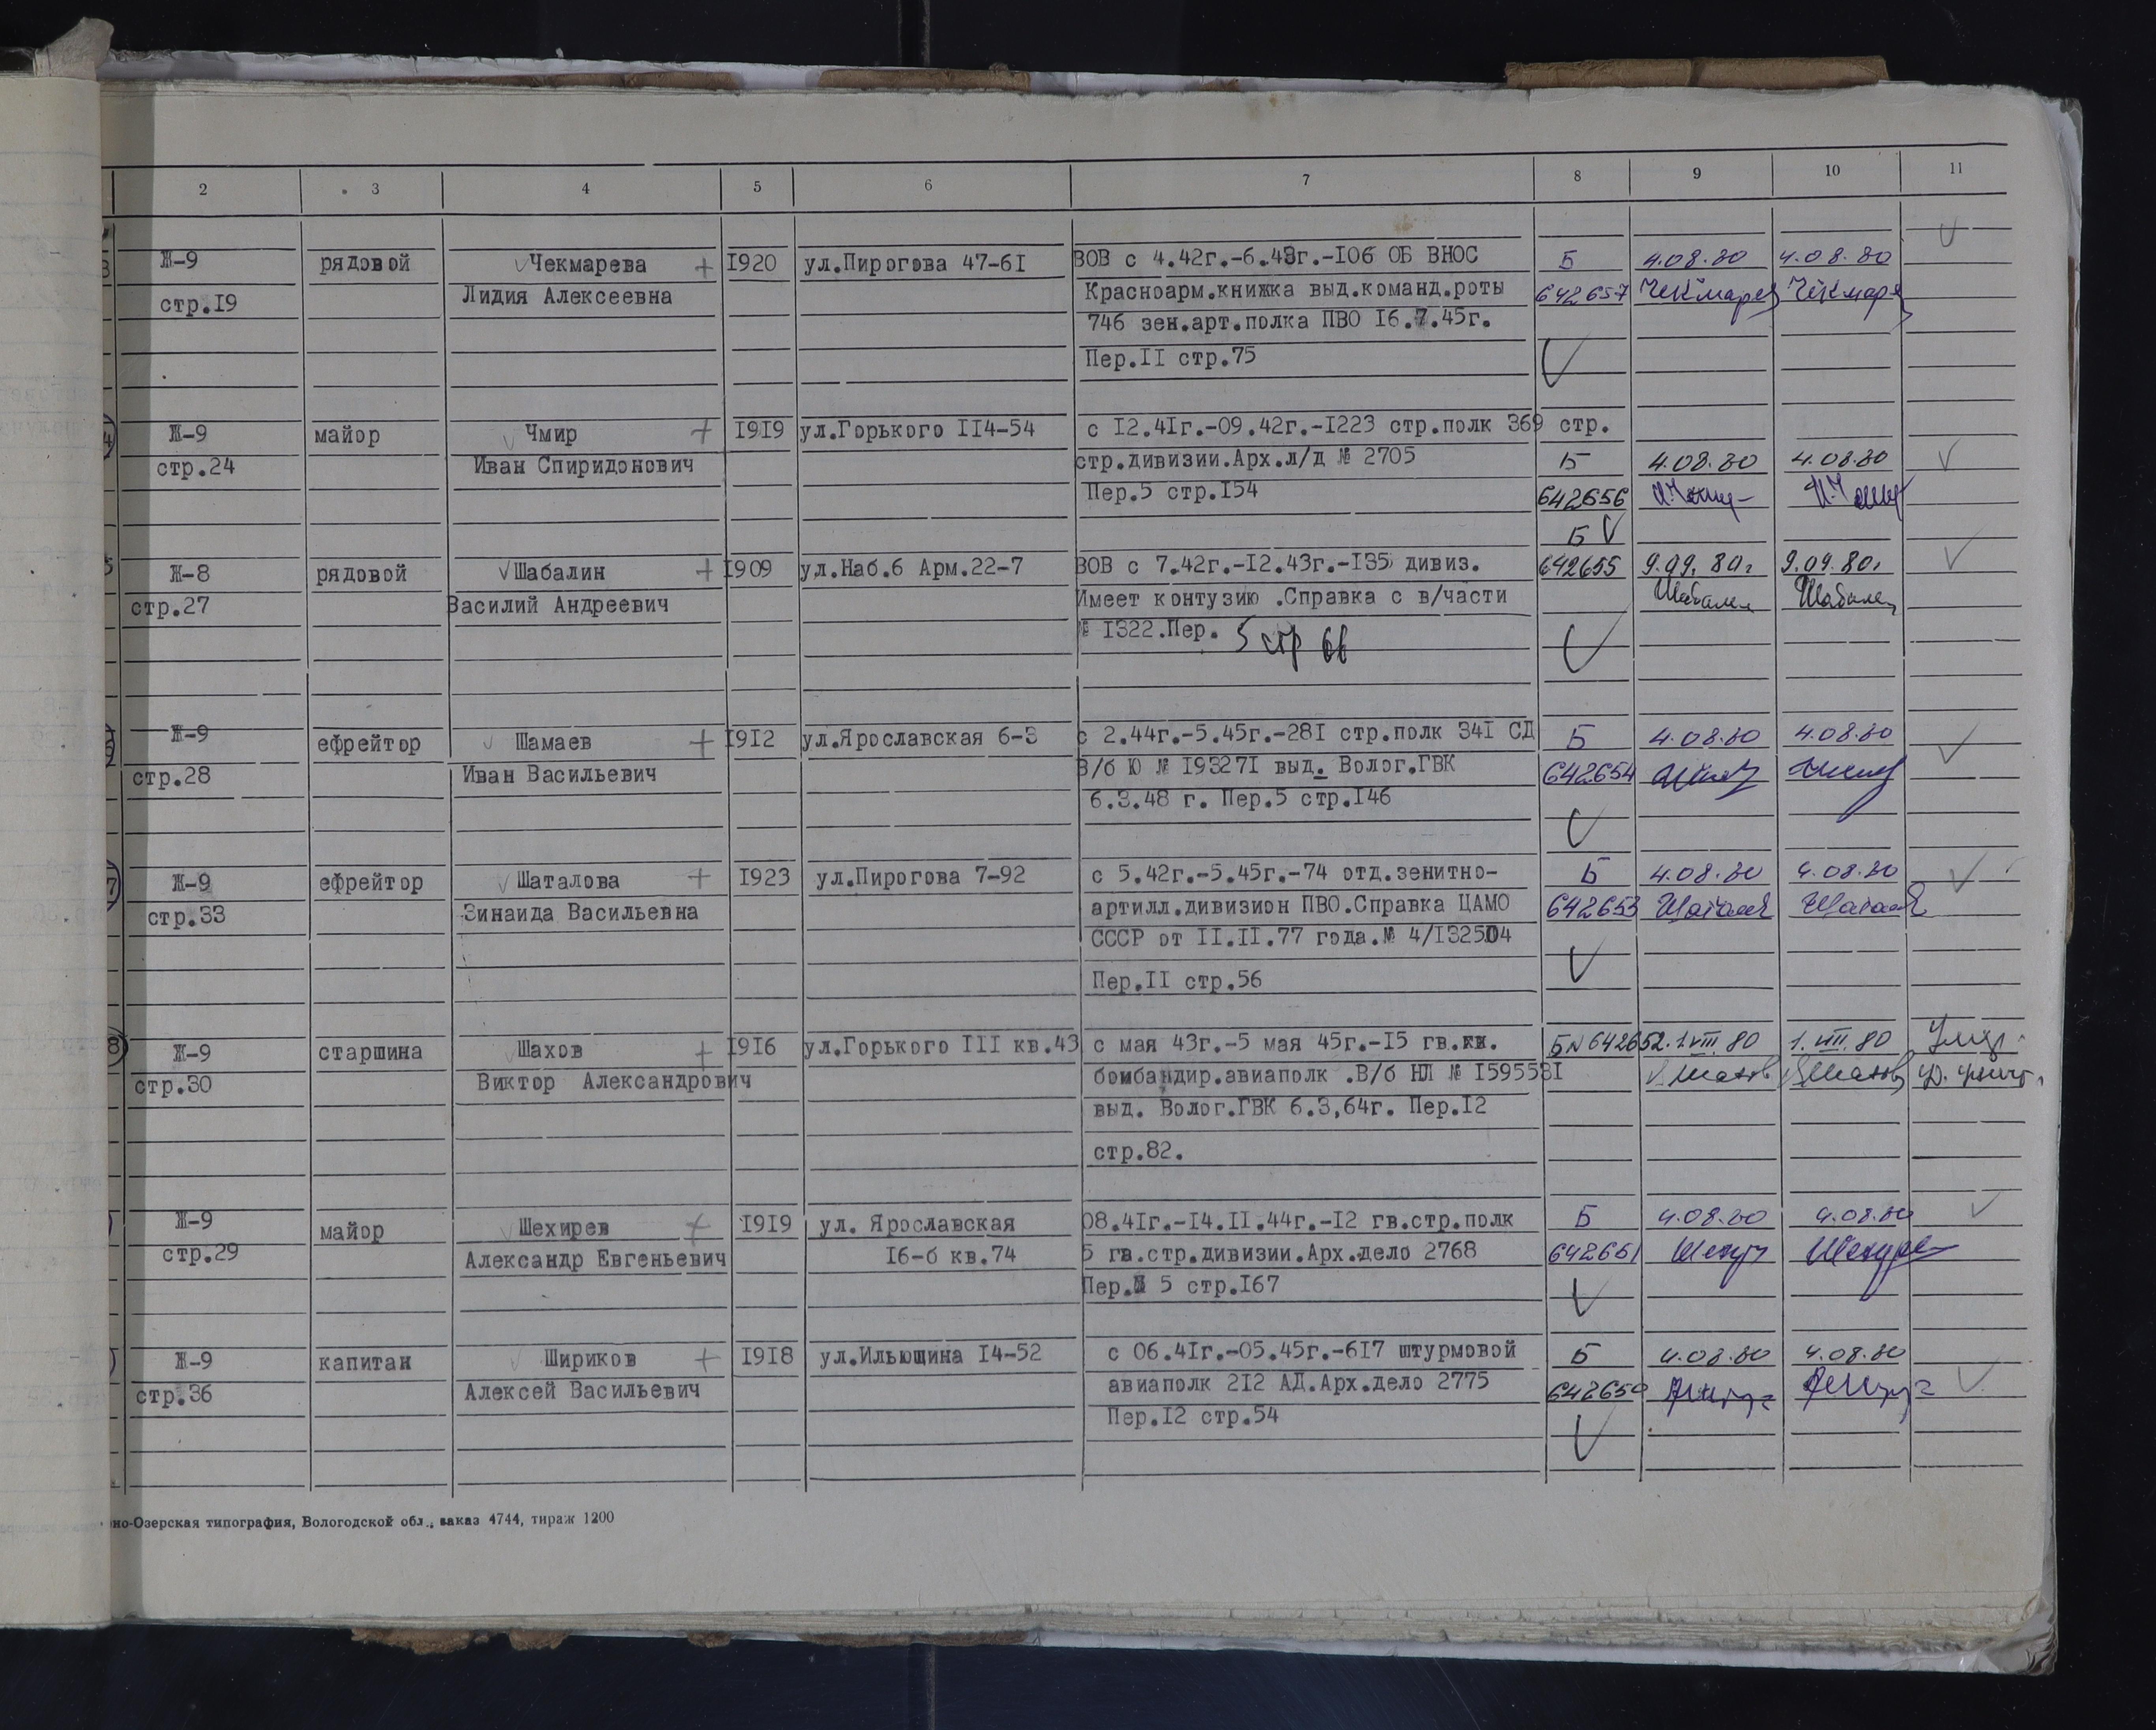 2 3 4 5 6 7 8 9 10 11
Ж-9 рядовой Чекмарева + 1920 ул.Пирогова 47-61 ВОВ с 4.42г.-6.43г.-106 ОБ ВНОС Б 4.08.80 4.08.80
стр.19 Лидия Алексеевна Красноарм.книжка выд.команд.роты 642657 Чекмарев Чекмарев
746 зен.арт.полка ПВО 16.7.45г.
Пер.II стр.75
Ж-9 майор Чмир + 1919 ул.Горького 114-54 с 12.41г.-09.42г.-1223 стр.полк 369 стр.
стр.24 Иван Спиридонович стр.дивизии.Арх.л/д № 2705 Б 4.08.80 4.08.80
Пер.5 стр.154 642656
Б
Ж-8 рядовой Шабалин + 1909 ул.Наб.6 Арм.22-7 ВОВ с 7.42г.-12.43г.-135 дивиз. 642655 9.09.80г 9.09.80г
стр.27 Василий Андреевич Имеет контузию .Справка с в/части Шабалин Шабалин
№ 1322.Пер. 5 стр 66
Ж-9 ефрейтор Шамаев + 1912 ул.Ярославская 6-3 с 2.44г.-5.45г.-281 стр.полк 341 СД Б 4.08.80 4.08.80
стр.28 Иван Васильевич В/б Ю № 193271 выд. Волог.ГВК 642654
6.3.48 г. Пер.5 стр.146
Ж-9 ефрейтор Шаталова + 1923 ул.Пирогова 7-92 с 5.42г.-5.45г.-74 отд.зенитно- Б 4.08.80 4.08.80
стр.33 Зинаида Васильевна артилл.дивизион ПВО.Справка ЦАМО 642653
СССР от II.II.77 года.№ 4/132504
Пер.II стр.56
8 Ж-9 старшина Шахов + 1916 ул.Горького III кв.43 с мая 43г.-5 мая 45г.-15 гв. Б№642652. 1.VIII.80 1.VIII.80
стр.30 Виктор Александрович бомбандир.авиаполк .В/б НЛ № 1595581 Шахов Шахов
выд. Волог.ГВК 6.3,64г. Пер.12
стр.82.
Ж-9 майор Шехирев + 1919 ул. Ярославская 08.41г.-14.II.44г.-12 гв.стр.полк Б 4.08.80 4.08.80
стр.29 Александр Евгеньевич 16-б кв.74 5 гв.стр.дивизии.Арх.дело 2768 642651
Пер.№ 5 стр.167
Ж-9 капитан Шириков + 1918 ул.Ильющина 14-52 с 06.41г.-05.45г.-617 штурмовой Б 4.08.80 4.08.80
стр.36 Алексей Васильевич авиаполк 212 АД.Арх.дело 2775 642650
Пер.12 стр.54
но-Озерская типография, Вологодской обл., заказ 4744, тираж 1200